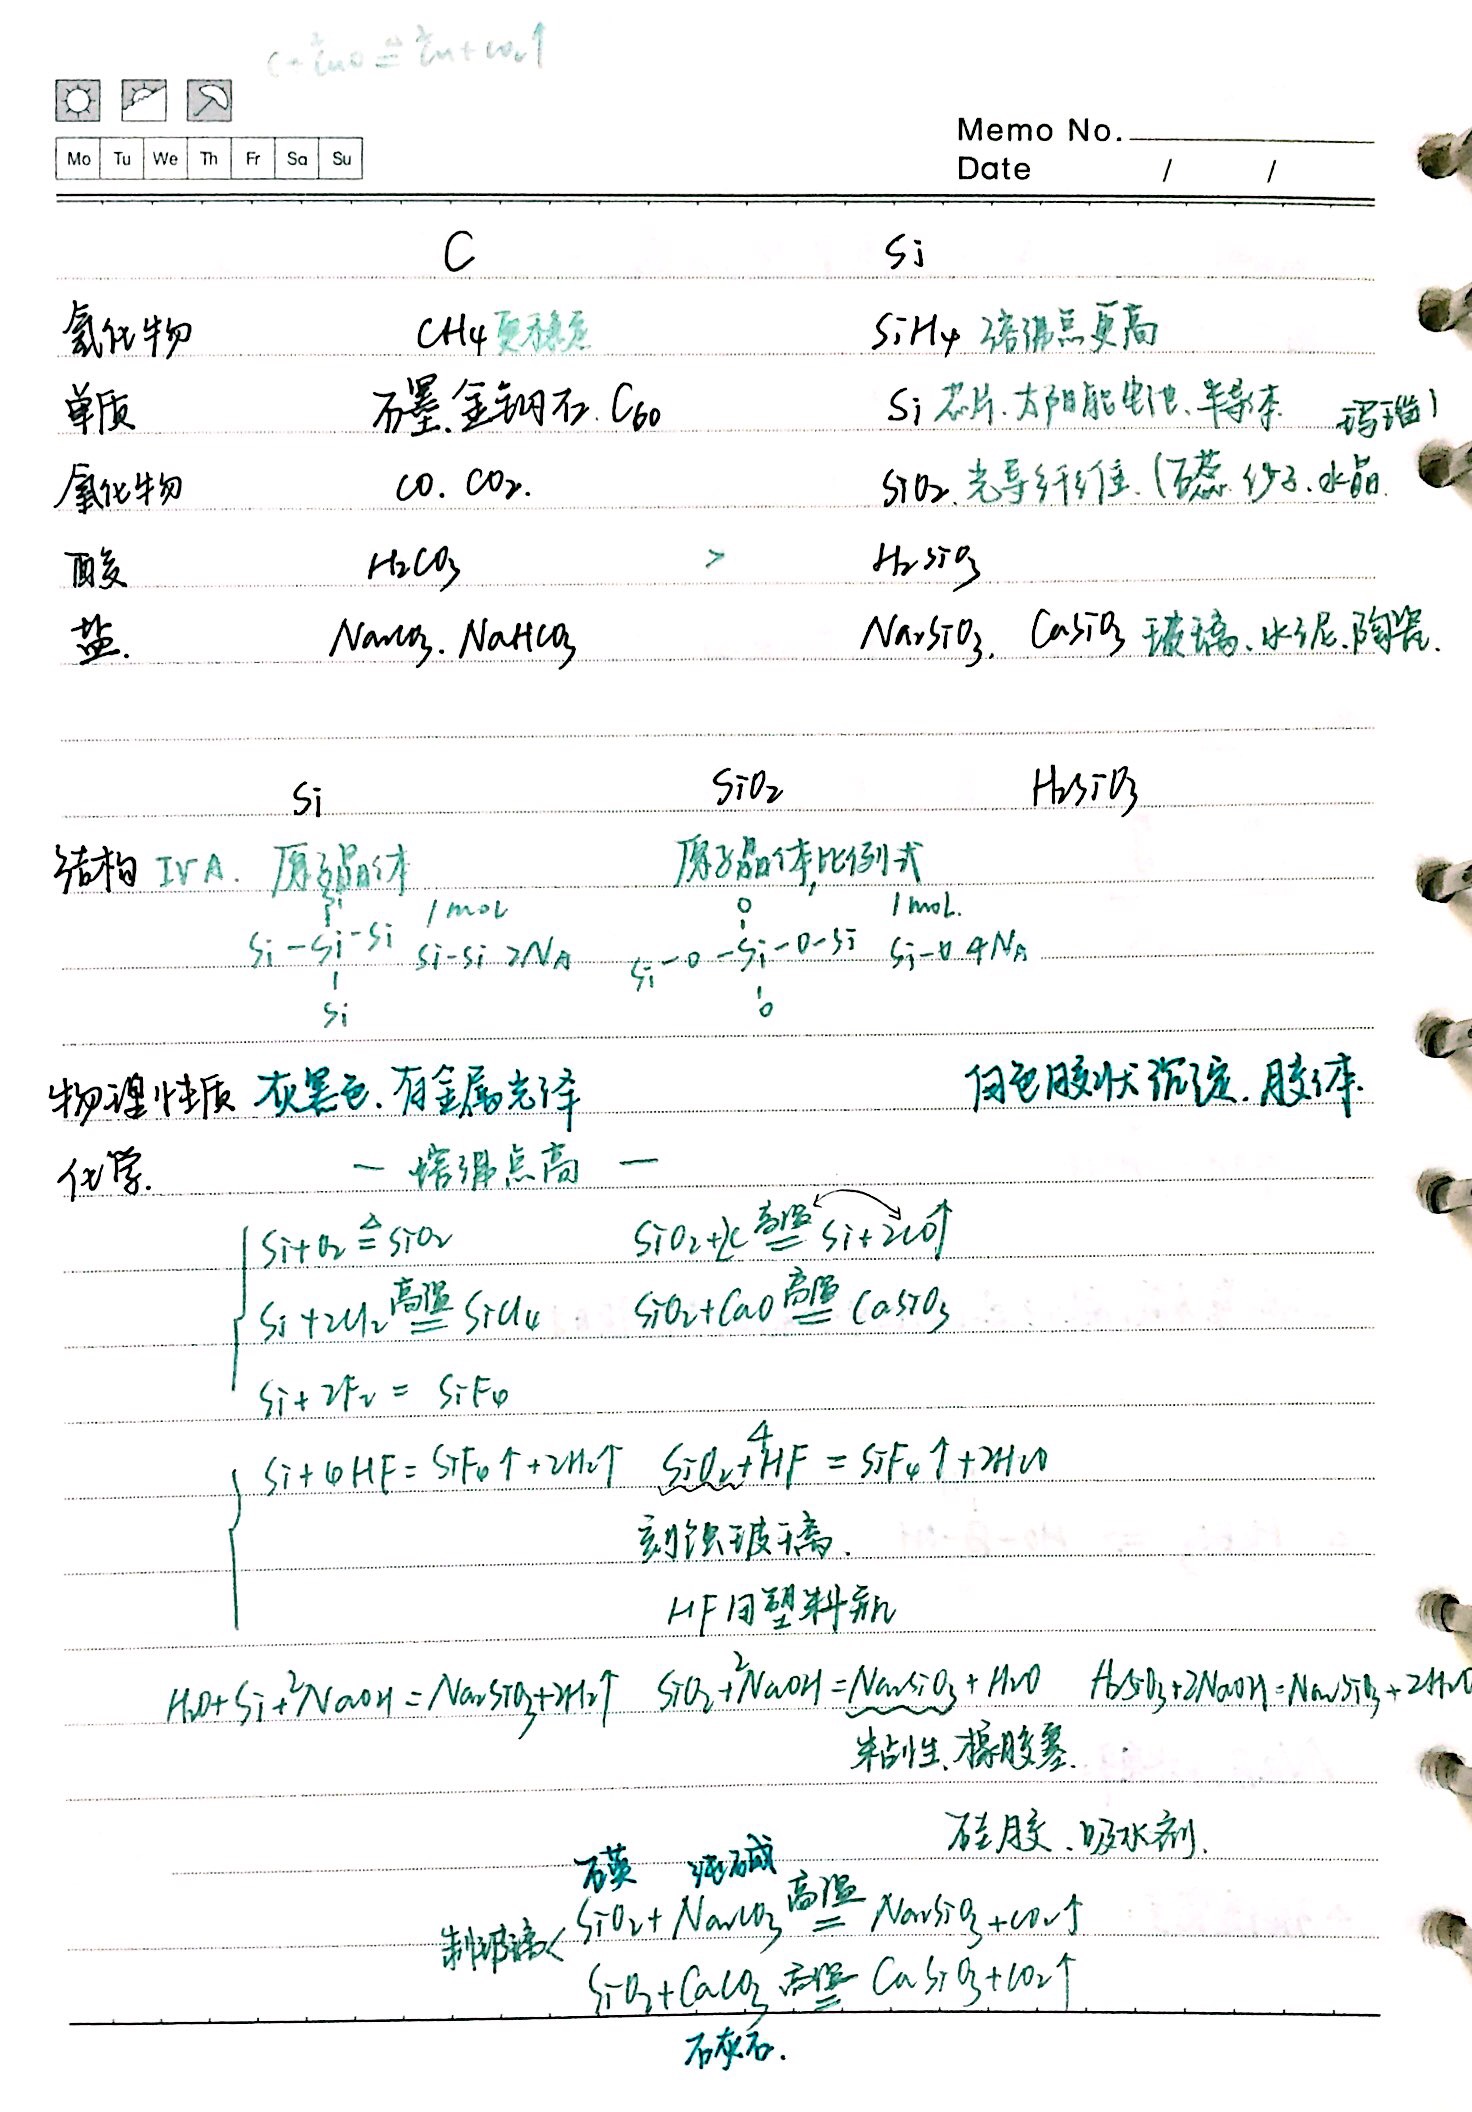 C + 2CuO ≜ 2Cu + CO₂↑
Mo Tu We Th Fr Sa Su
Memo No.
Date / /
C Si
氢化物 CH₄ 更稳定 SiH₄ 熔沸点更高
单质 石墨、金刚石、C₆₀ Si 芯片、太阳能电池、半导体 玛瑙)
氧化物 CO、CO₂. SiO₂、光导纤维、(石英、沙子、水晶
酸 H₂CO₃ > H₂SiO₃
盐. Na₂CO₃、NaHCO₃ Na₂SiO₃、 CaSiO₃ 玻璃、水泥、陶瓷.
Si SiO₂ H₂SiO₃
结构 IVA. 原子晶体 原子晶体,比例式
Si 1mol O 1mol.
Si-Si-Si Si-Si 2NA Si-O-Si-O-Si Si-O 4NA
Si O
物理性质 灰黑色、有金属光泽 白色胶状沉淀、胶体.
化学. — 熔沸点高 —
Si+O₂ ≜ SiO₂ SiO₂+2C 高温═ Si+2CO↑
Si+2H₂ 高温═ SiH₄ SiO₂+CaO 高温═ CaSiO₃
Si+2F₂ = SiF₄
Si+4HF=SiF₄↑+2H₂↑ SiO₂+4HF=SiF₄↑+2H₂O
刻蚀玻璃.
HF用塑料瓶
H₂O+Si+2NaOH=Na₂SiO₃+2H₂↑ SiO₂+2NaOH=Na₂SiO₃+H₂O H₂SiO₃+2NaOH=Na₂SiO₃+2H₂O
粘性、橡胶塞.
硅胶、吸水剂.
石英 纯碱
制玻璃< SiO₂+Na₂CO₃ 高温═ Na₂SiO₃+CO₂↑
SiO₂+CaCO₃ 高温═ CaSiO₃+CO₂↑
石灰石.